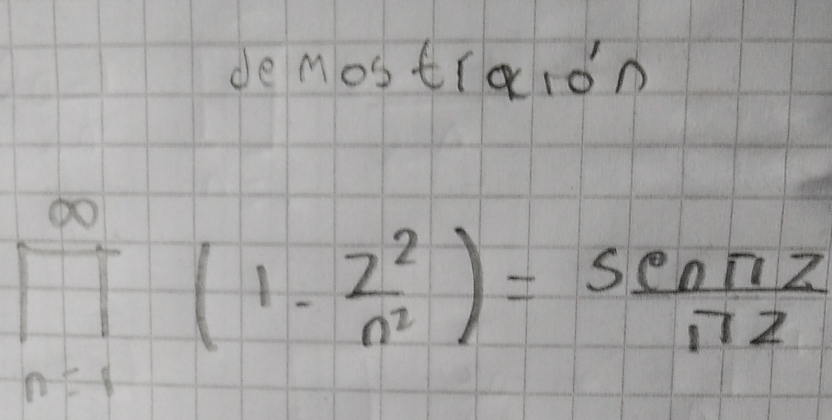 demostraión
∞
∏ (1 - z²/n²) = sen πz/πz
n=1